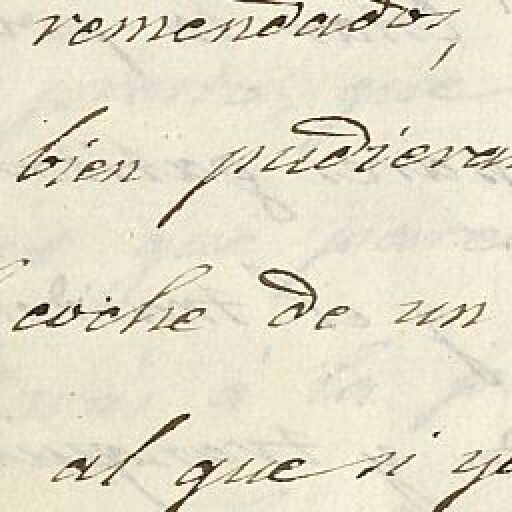 remendados,
bien pudieran
coche de un
al que si yo